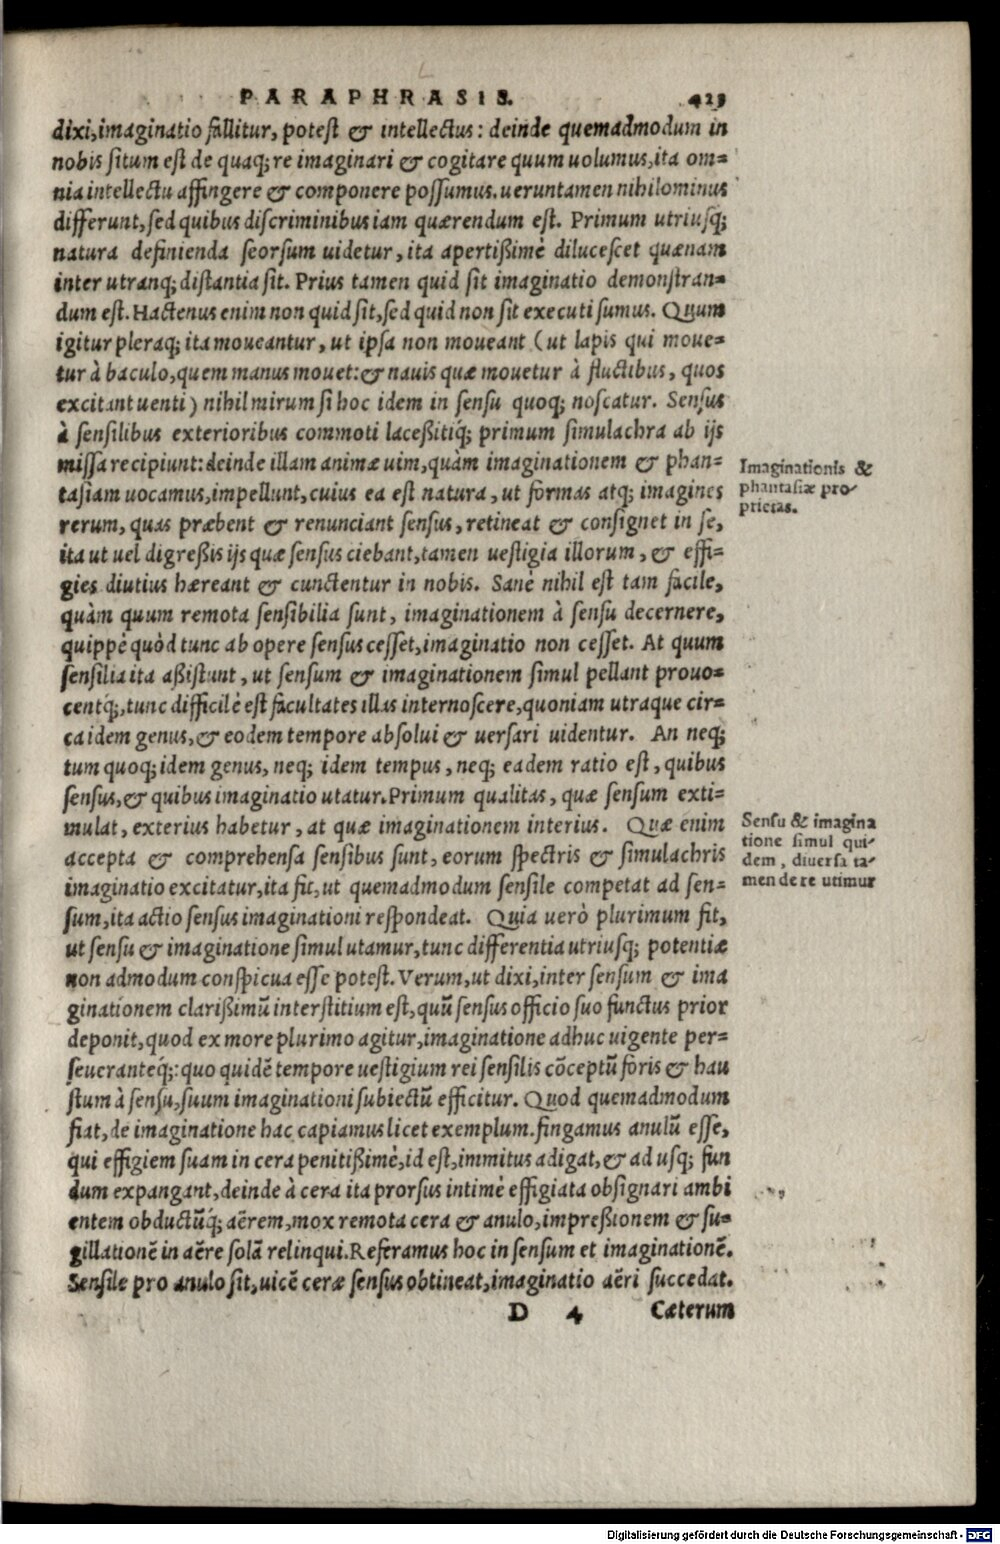 PARAPHRASIS. 423
dixi, imaginatio fallitur, potest & intellectus: deinde quemadmodum in
nobis situm est de quaq; re imaginari & cogitare quum uolumus, ita om=
nia intellectu affingere & componere possumus. ueruntamen nihilominus
differunt, sed quibus discriminibus iam quærendum est. Primum utriusq;
natura definienda seorsum uidetur, ita apertißimè dilucescet quænam
inter utranq; distantia sit. Prius tamen quid sit imaginatio demonstran=
dum est. Hactenus enim non quid sit, sed quid non sit executi sumus. Quum
igitur pleraq; ita moueantur, ut ipsa non moueant (ut lapis qui moue=
tur à baculo, quem manus mouet: & nauis quæ mouetur à fluctibus, quos
excitant uenti) nihil mirum si hoc idem in sensu quoq; noscatur. Sensus
à sensilibus exterioribus commoti laceßitiq́; primum simulachra ab ijs
missa recipiunt: deinde illam animæ uim, quàm imaginationem & phan=
tasiam uocamus, impellunt, cuius ea est natura, ut formas atq; imagines
rerum, quas præbent & renunciant sensus, retineat & consignet in se,
ita ut uel digreßis ijs quæ sensus ciebant, tamen uestigia illorum, & effi=
gies diutius hæreant & cunctentur in nobis. Sanè nihil est tam facile,
quàm quum remota sensibilia sunt, imaginationem à sensu decernere,
quippè quòd tunc ab opere sensus cesset, imaginatio non cesset. At quum
sensilia ita aßistunt, ut sensum & imaginationem simul pellant prouo=
centq́;, tunc difficilè est facultates illas internoscere, quoniam utraque cir=
ca idem genus, & eodem tempore absolui & uersari uidentur. An neq;
tum quoq; idem genus, neq; idem tempus, neq; eadem ratio est, quibus
sensus, & quibus imaginatio utatur. Primum qualitas, quæ sensum exti=
mulat, exterius habetur, at quæ imaginationem interius. Quæ enim
accepta & comprehensa sensibus sunt, eorum spectris & simulachris
imaginatio excitatur, ita fit, ut quemadmodum sensile competat ad sen=
sum, ita actio sensus imaginationi respondeat. Quia uerò plurimum fit,
ut sensu & imaginatione simul utamur, tunc differentia utriusq; potentiæ
non admodum conspicua esse potest. Verum, ut dixi, inter sensum & ima
ginationem clarißimũ interstitium est, quũ sensus officio suo functus prior
deponit, quod ex more plurimo agitur, imaginatione adhuc uigente per=
seueranteq́;: quo quidẽ tempore uestigium rei sensilis cõceptũ foris & hau
stum à sensu, suum imaginationi subiectũ efficitur. Quod quemadmodum
fiat, de imaginatione hac capiamus licet exemplum. fingamus anulũ esse,
qui effigiem suam in cera penitißimè, id est, immitus adigat, & ad usq; fun
dum expangant, deinde à cera ita prorsus intimè effigiata obsignari ambi
entem obductũq́; aërem, mox remota cera & anulo, impreßionem & su=
gillationẽ in aëre solã relinqui. Referamus hoc in sensum et imaginationẽ.
Sensile pro anulo sit, uicẽ ceræ sensus obtineat, imaginatio aëri succedat.
D 4 Cæterum
Imaginationis &
phantasiæ pro
prietas.
Sensu & imagina
tione simul qui
dem, diuersa ta
men de re utimur
Digitalisierung gefördert durch die Deutsche Forschungsgemeinschaft - DFG